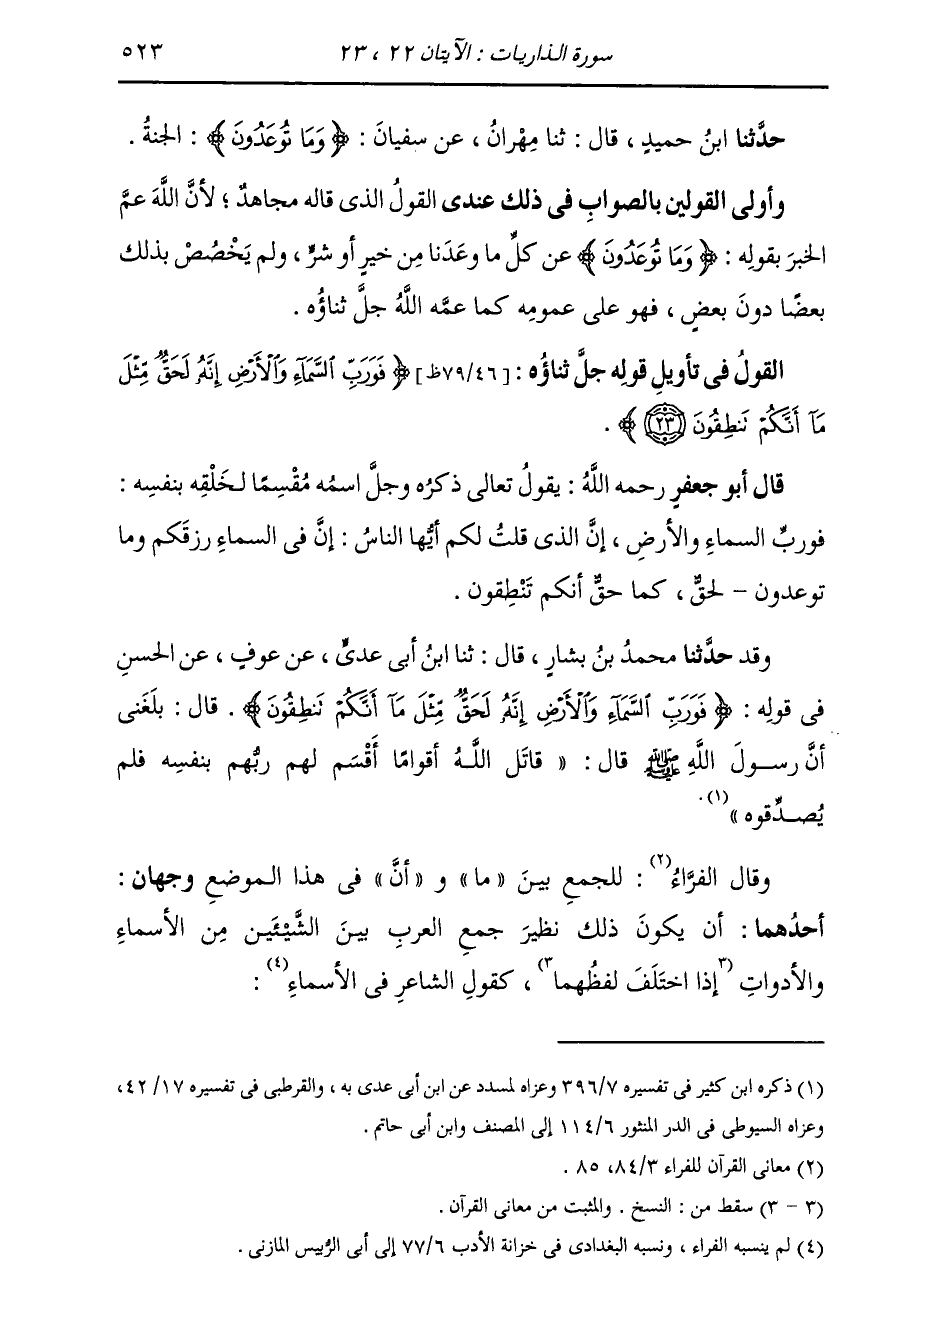 سورة الذاريات : الآيتان ٢٢ ، ٢٣
٥٢٣
حدَّثنا ابنُ حميدٍ ، قال : ثنا مِهْرانُ ، عن سفيانَ : ﴿ وَمَا تُوعَدُونَ ﴾ : الجنةُ .
وأولى القولين بالصوابِ فى ذلك عندى القولُ الذى قاله مجاهدٌ ؛ لأنَّ اللَّهَ عمَّ
الخبرَ بقولِه : ﴿ وَمَا تُوعَدُونَ ﴾ عن كلِّ ما وعَدَنا مِن خيرٍ أو شرٍّ ، ولم يَخْصُصْ بذلك
بعضًا دونَ بعضٍ ، فهو على عمومِه كما عمَّه اللَّهُ جلَّ ثناؤُه .
القولُ فى تأويلِ قولِه جلَّ ثناؤُه : [٧٩/٤٦ظ] ﴿ فَوَرَبِّ ٱلسَّمَآءِ وَٱلْأَرْضِ إِنَّهُۥ لَحَقٌّ مِّثْلَ
مَآ أَنَّكُمْ نَنطِقُونَ ﴿٢٣﴾ ﴾ .
قال أبو جعفرٍ رحمه اللَّهُ : يقولُ تعالى ذكرُه وجلَّ اسمُه مُقْسِمًا لخَلْقِه بنفسِه :
فوربِّ السماءِ والأرضِ ، إنَّ الذى قلتُ لكم أيُّها الناسُ : إنَّ فى السماءِ رزقَكم وما
توعدون - لحقٌّ ، كما حقٌّ أنكم تَنْطِقون .
وقد حدَّثنا محمدُ بنُ بشارٍ ، قال : ثنا ابنُ أبى عدىٍّ ، عن عوفٍ ، عن الحسنِ
فى قولِه : ﴿ فَوَرَبِّ ٱلسَّمَآءِ وَٱلْأَرْضِ إِنَّهُۥ لَحَقٌّ مِّثْلَ مَآ أَنَّكُمْ نَنطِقُونَ ﴾ . قال : بلَغَنى
أنَّ رسولَ اللَّهِ ﷺ قال : « قاتَل اللَّهُ أقوامًا أَقْسَم لهم ربُّهم بنفسِه فلم
يُصدِّقوه »(١) .
وقال الفرَّاءُ(٢) : للجمعِ بينَ « ما » و « أنَّ » فى هذا الموضعِ وجهان :
أحدُهما : أن يكونَ ذلك نظيرَ جمعِ العربِ بينَ الشَّيْئَين مِن الأسماءِ
والأدواتِ (٣إذا اختَلَفَ لفظُهما٣) ، كقولِ الشاعرِ فى الأسماءِ(٤) :
(١) ذكره ابن كثير فى تفسيره ٣٩٦/٧ وعزاه لمسدد عن ابن أبى عدى به ، والقرطبى فى تفسيره ١٧/ ٤٢،
وعزاه السيوطى فى الدر المنثور ١١٤/٦ إلى المصنف وابن أبى حاتم .
(٢) معانى القرآن للفراء ٨٤/٣، ٨٥ .
(٣ - ٣) سقط من : النسخ . والمثبت من معانى القرآن .
(٤) لم ينسبه الفراء ، ونسبه البغدادى فى خزانة الأدب ٧٧/٦ إلى أبى الرُّبيس المازنى .